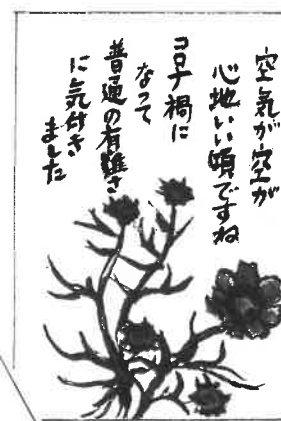 空気が空が
心地いい頃ですね
コロナ禍に
なって
普通の有難さ
に気付き
ました